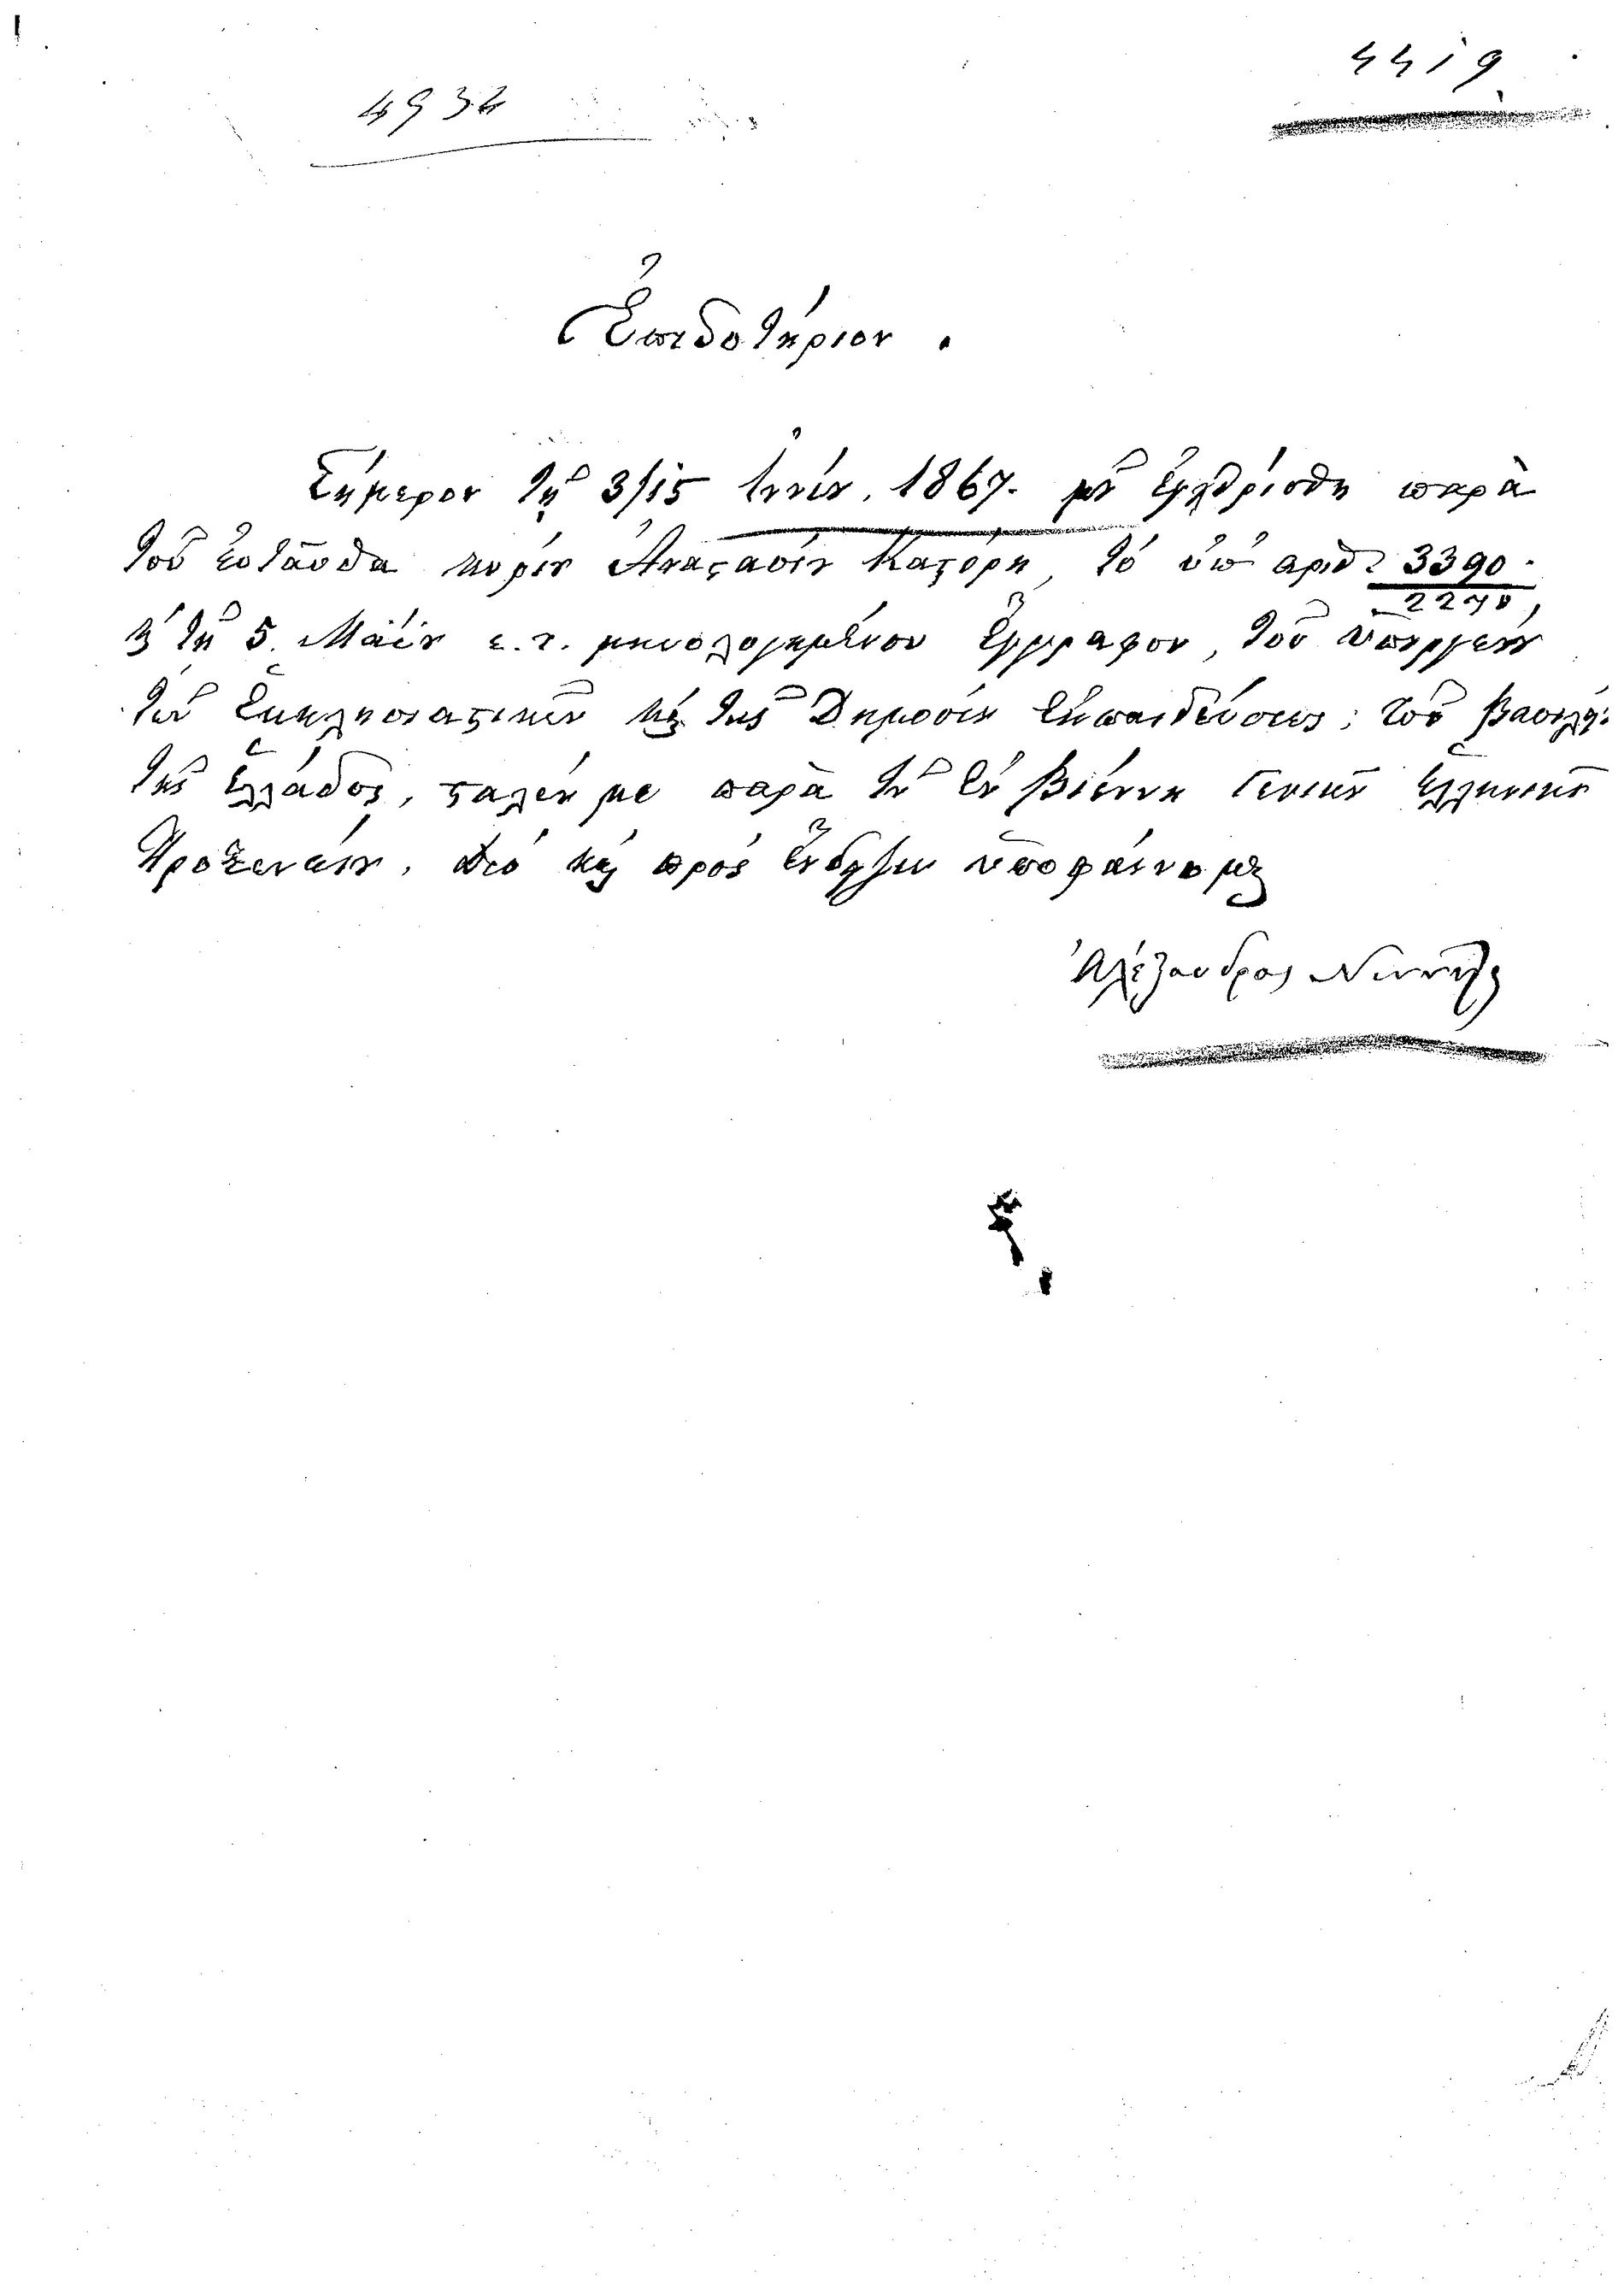 4934
4419
Ἐπιδοτήριον.
Σήμερον τῇ 3/15 Ἰουνίου 1867. μοῦ ἐγχειρίσθη παρὰ
τοῦ ἐνταῦθα κυρίου Ἀναστασίου Καστόρχη, τὸ ὑπ' ἀριθ: 3390.
2270,
καὶ τῇ 5. Μαΐου ἐ.ἔ. μηνολογημένον ἔγγραφον, τοῦ Ὑπουργείου
τῶν Ἐκκλησιαστικῶν καὶ τῆς Δημοσίου Ἐκπαιδεύσεως, τοῦ βασιλ:
τῆς Ἑλλάδος, σταλέν με παρὰ τοῦ ἐν Βιέννῃ Γενικοῦ Ἑλληνικοῦ
Προξενείου. Διὸ καὶ πρὸς ἔνδειξιν ὑποφαίνομαι
Ἀλέξανδρος